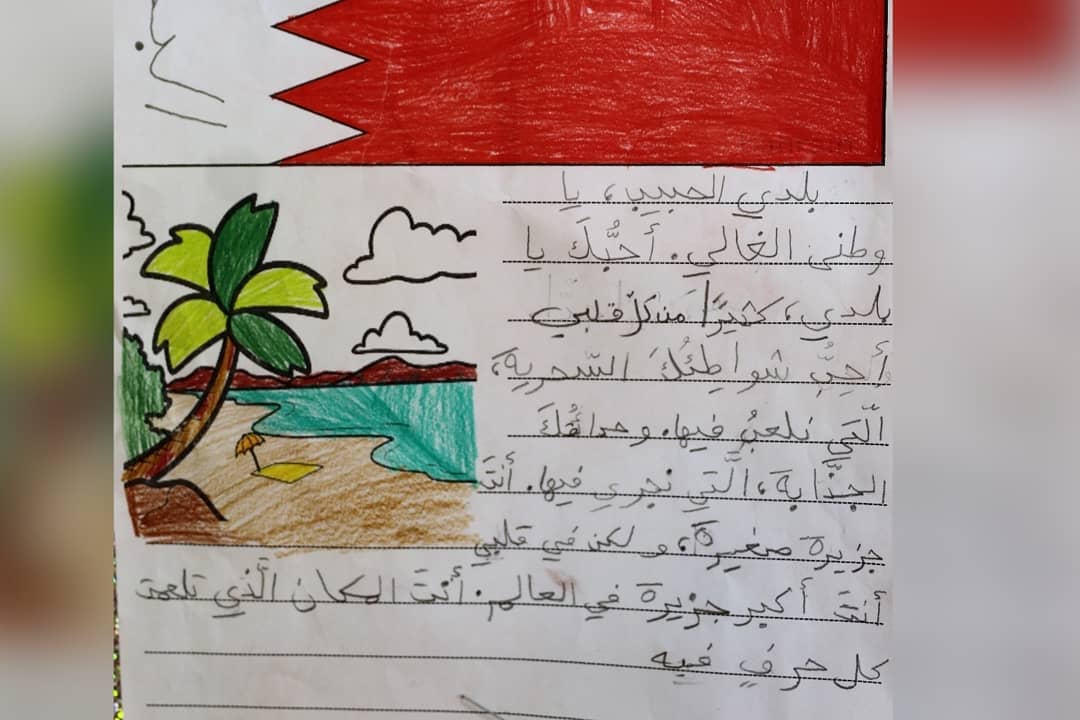 بلدي الحبيب، يا
وطنى الغالي. أحبُّكَ يا
بلدي، كثيرًا من كل قلبي
أحِبُّ شواطِئُكَ السّحرية،
الّتي نلعبُ فيها. وحدائقُكَ
الجذّابة، الَّتِي نجري فيها. أنتَ
جزيرة صغيرة، ولكن في قلبي
أنتَ أكبر جزيرة في العالم. أنتَ المكان الَّذي تلعمت
كل حرفٍ فيه